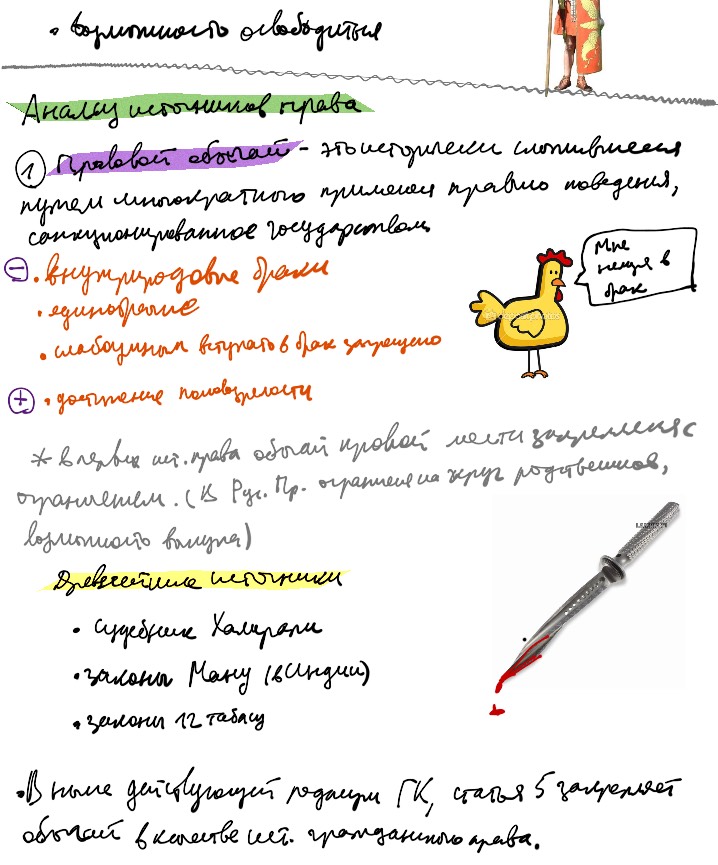 • возможность освободиться
Анализ источников права
① Правовой обычай - это исторически сложившееся
путем многократного применен правило поведения,
санкционированное государством
⊖ • внутриродовые браки
• единобрачие
• слабоумным вступать в брак запрещено
⊕ • достижение половозрелости
Мне
нельзя в
брак
* в первых ист. права обычай кровной мести закреплялся с
ограничением. (В Рус. Пр. ограничен на круг родственников,
возможность выкупа)
Древнейшие источники
• судебник Хаммурапи
• законы Ману (в Индии)
• законы 12 таблиц
• В ныне действующей редакции ГК, статья 5 закрепляет
обычай в качестве ист. гражданского права.